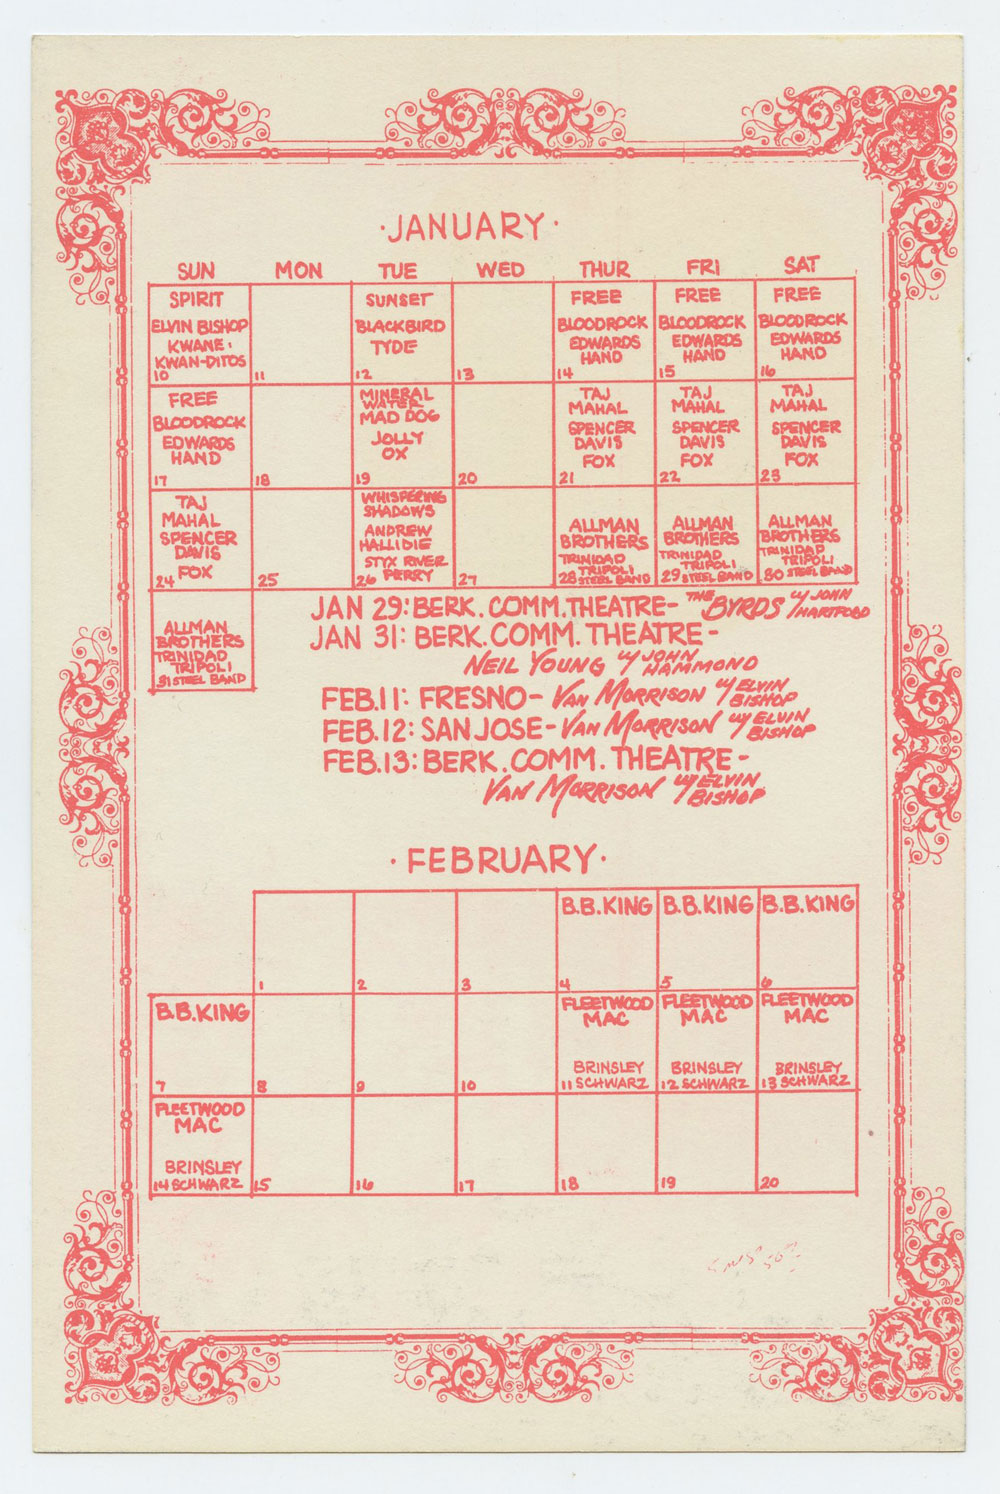 ·JANUARY·
SUN MON TUE WED THUR FRI SAT
SPIRIT
ELVIN BISHOP
KWANE ·
KWAN-DITOS
10
11
SUNSET
BLACKBIRD
TYDE
12
13
FREE
BLOODROCK
EDWARDS
HAND
14
FREE
BLOODROCK
EDWARDS
HAND
15
FREE
BLOODROCK
EDWARDS
HAND
16
FREE
BLOODROCK
EDWARDS
HAND
17
18
MINERAL
WATER
MAD DOG
JOLLY
OX
19
20
TAJ
MAHAL
SPENCER
DAVIS
FOX
21
TAJ
MAHAL
SPENCER
DAVIS
FOX
22
TAJ
MAHAL
SPENCER
DAVIS
FOX
23
TAJ
MAHAL
SPENCER
DAVIS
24 FOX
25
WHISPERING
SHADOWS
ANDREW
HALLIDIE
STYX RIVER
26 FERRY
27
ALLMAN
BROTHERS
TRINIDAD
TRIPOLI
28 STEEL BAND
ALLMAN
BROTHERS
TRINIDAD
TRIPOLI
29 STEEL BAND
ALLMAN
BROTHERS
TRINIDAD
TRIPOLI
30 STEEL BAND
ALLMAN
BROTHERS
TRINIDAD
TRIPOLI
31 STEEL BAND
JAN 29: BERK. COMM. THEATRE- THE BYRDS W/ JOHN HARTFORD
JAN 31: BERK. COMM. THEATRE-
NEIL YOUNG W/ JOHN HAMMOND
FEB. 11: FRESNO- VAN MORRISON W/ ELVIN BISHOP
FEB. 12: SAN JOSE- VAN MORRISON W/ ELVIN BISHOP
FEB. 13: BERK. COMM. THEATRE-
VAN MORRISON W/ ELVIN BISHOP
·FEBRUARY·
1
2
3
B.B. KING
4
B.B. KING
5
B.B. KING
6
B.B. KING
7
8
9
10
FLEETWOOD
MAC
BRINSLEY
11 SCHWARZ
FLEETWOOD
MAC
BRINSLEY
12 SCHWARZ
FLEETWOOD
MAC
BRINSLEY
13 SCHWARZ
FLEETWOOD
MAC
BRINSLEY
14 SCHWARZ
15
16
17
18
19
20